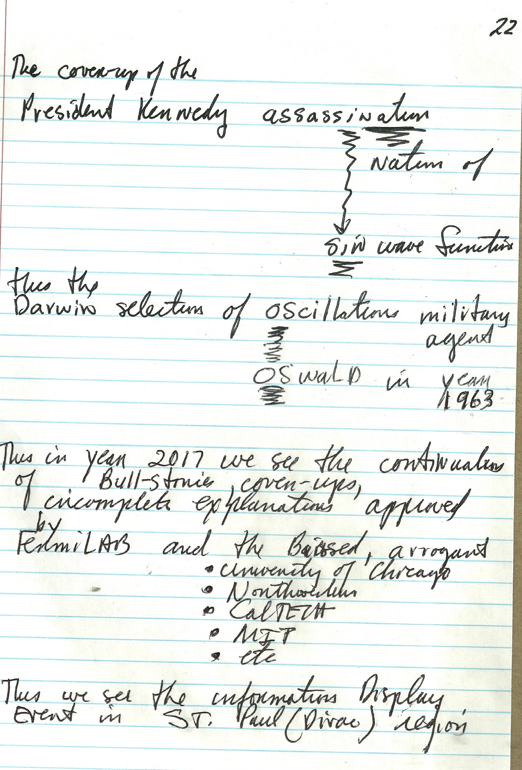 22
The cover-up of the
President Kennedy assassination
Nation of
sin wave function
thus the
Darwin selection of OScillations military
agent
OSwaLD in year
1963
Thus in year 2017 we see the continuation
of Bull-stories, cover-ups,
incomplete explanations approved
by
FermiLAB and the Biased, arrogant
• University of Chicago
• Northwestern
• CalTECH
• MIT
• etc
Thus we see the information Display
Event in ST. Paul (Dirac) region